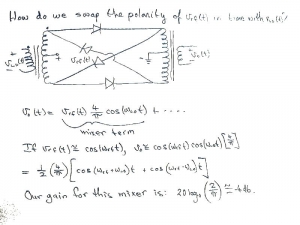 How do we swap the polarity of v_RF(t) in time with v_LO(t)?
+ v_LO(t) -
+
v_RF(t)
-
v_o(t)
v_o(t) = v_RF(t) 4/π cos(ω_LO t) + ....
mixer term
If v_RF(t) ≅ cos(ω_RF t), v_o ≅ cos(ω_RF t) cos(ω_LO t) [4/π]
= 1/2 (4/π) [cos(ω_RF + ω_LO)t + cos(ω_RF - ω_LO)t]
Our gain for this mixer is: 20 log₁₀ (2/π) ≅ -4dB.